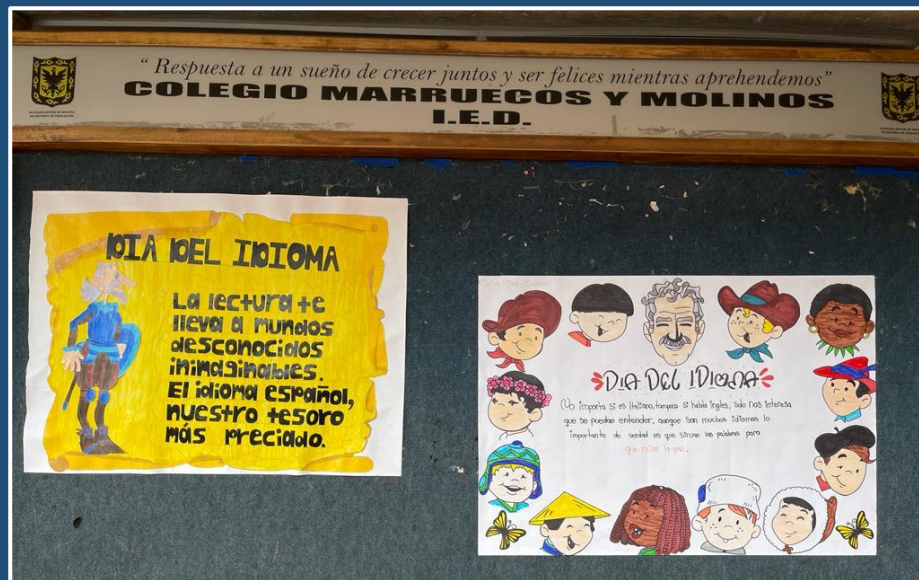 “ Respuesta a un sueño de crecer juntos y ser felices mientras aprehendemos”
COLEGIO MARRUECOS Y MOLINOS
I.E.D.
DIA DEL IDIOMA
La lectura te
lleva a mundos
desconocidos
inimaginables.
El idioma español,
nuestro tesoro
más preciado.
DIA DEL IDIOMA
No importa si es Italiano, tampoco si habla ingles, solo nos interesa
que se puedan entender, aunque son muchos idiomas lo
importante de verdad es que sirvan las palabras para
que reine la paz.